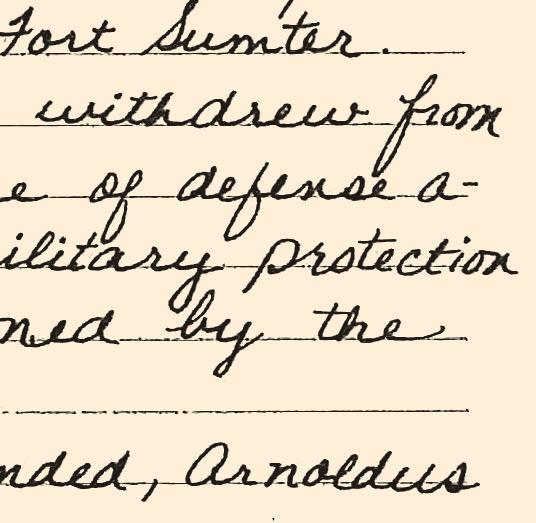 Fort Sumter.
withdrew from
e of defense a-
ilitary protection
ned by the
nded, Arnoldus